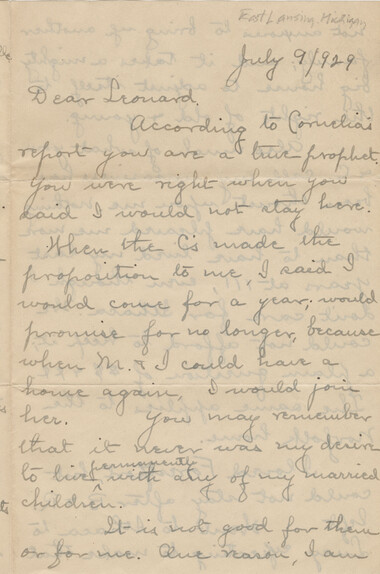 East Lansing, Michigan
July 9/1929
Dear Leonard.
According to Cornelia's
report you are a true prophet.
You were right when you
said I would not stay here.
When the Cs made the
proposition to me, I said I
would come for a year; would
promise for no longer, because
when M. & I could have a
home again, I would join
her. You may remember
that it never was my desire
permanently
to live with any of my married
children.
It is not good for them
or for me. One reason, I am